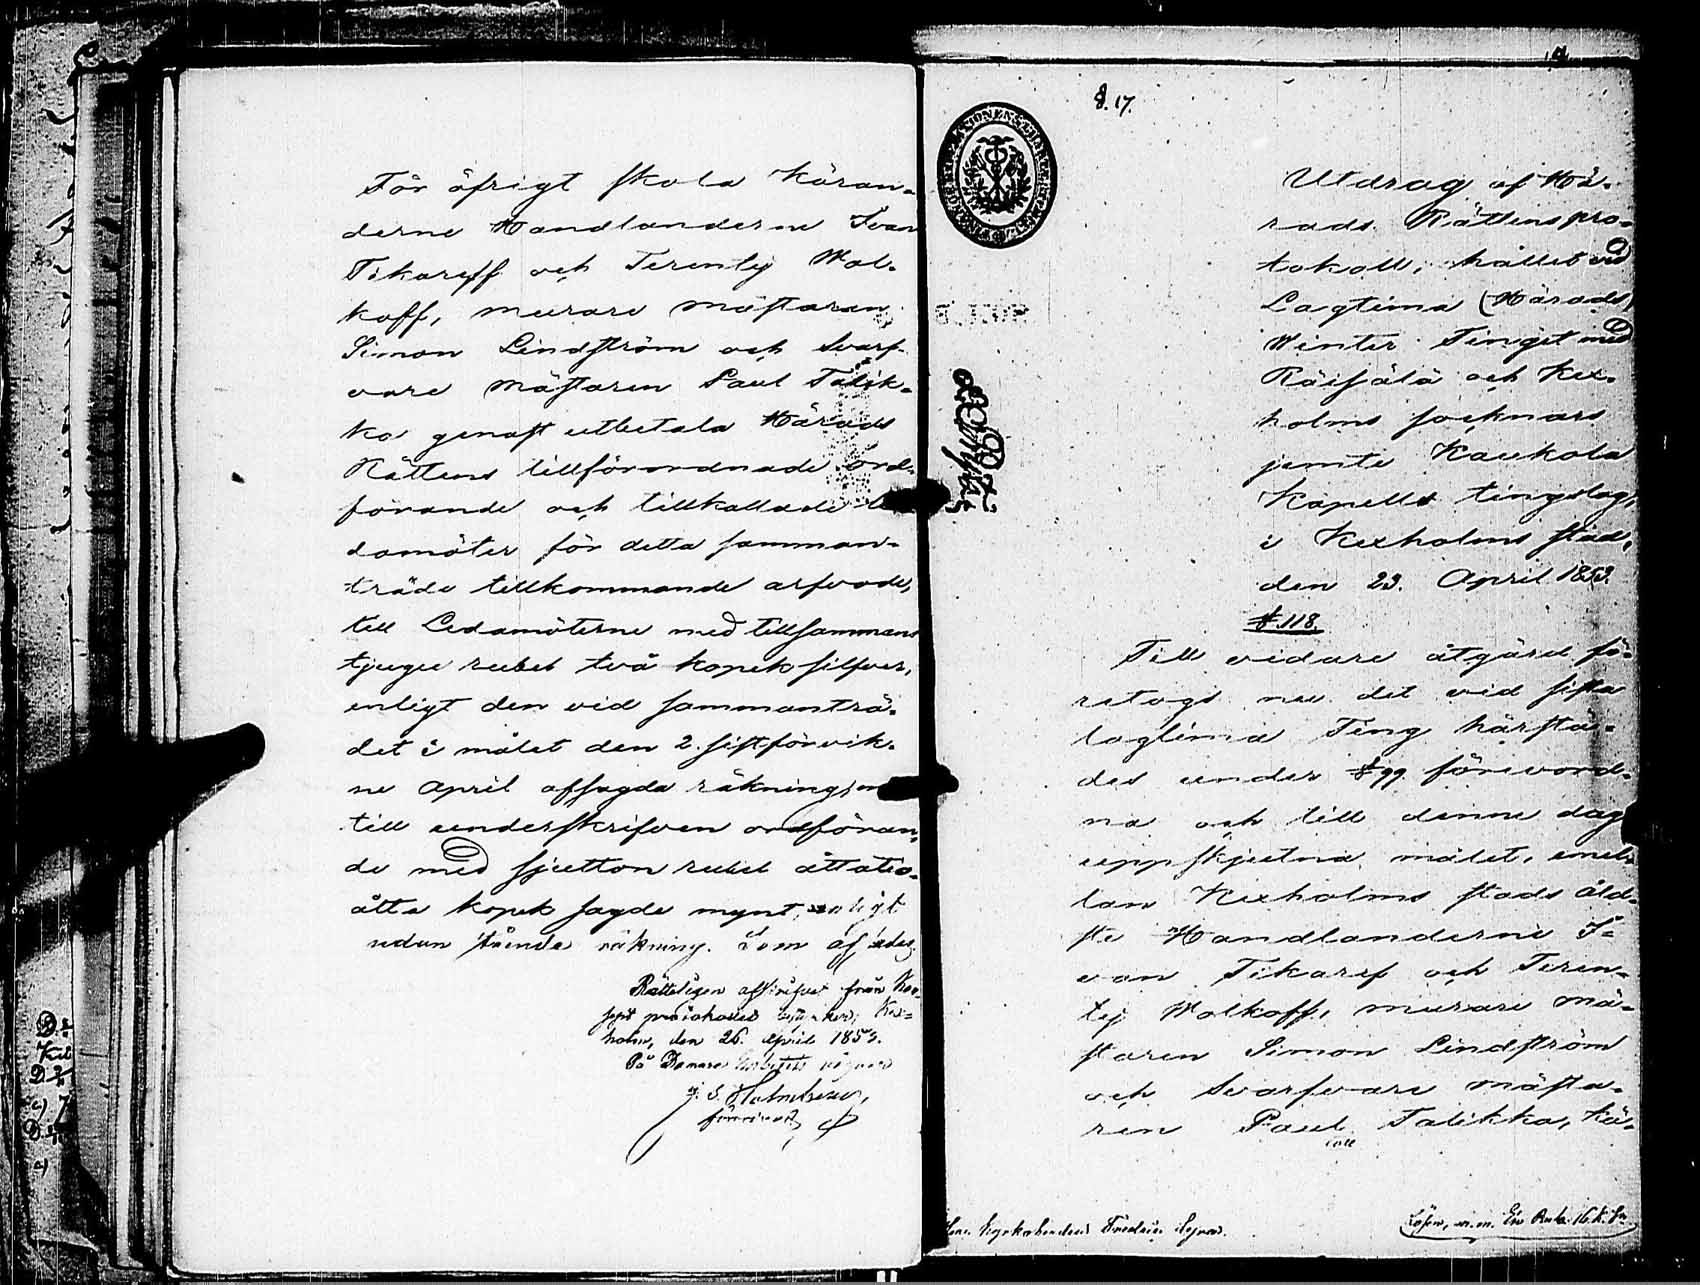 För öfrigt skola Käran-
derne Handlanderne Ivan
Tikareff och Terentej Wol-
koff, murare mästaren
Simon Lindström och Svarf-
vare mästaren Paul Talik-
ka genast utbetala Härads
Rättens tillförordnade ord-
förande och tillkallade le-
damöter för detta samman-
träde tillkommande arfvode,
till Ledamöterne med tillsammans
tjugu rubel två kopek silfver,
enligt den vid sammanträ-
det i målet den 2. sistförvik-
ne April afsagda räkning, och
till underskrifven ordföran-
de med sjutton rubel åttatio-
åtta kopek sagde mynt, enligt
nedan stående räkning. Som afsades
Rätteligen afskrifvet från
holm, den 26. April 1853.
På Domare Embetets vägnar
förordnad
§. 17.
Utdrag af Hä-
rads Rättens pro-
tokoll, hållet vid
Lagtima (Härads)
Winter Tinget med
Räisälä och Kex-
holms socknars
jemte Kaukola
Kapells tingslag,
i Kexholms stad,
den 23. April 1853.
§. 118.
Till vidare åtgärd fö-
retogs nu det vid sista
lagtima Ting härstä-
des under § 99. förevord-
na och till denne dag
uppskjutna målet, emel-
lan Kexholms stads äld-
ste Handlanderne I-
van Tikaref och Teren-
tej Wolkoff, murare mä-
staren Simon Lindström
och Svarfvare mästa-
ren Paul Talikka, Kä-
coll
Lösen, m.m. En Rub. 16 k. Sr